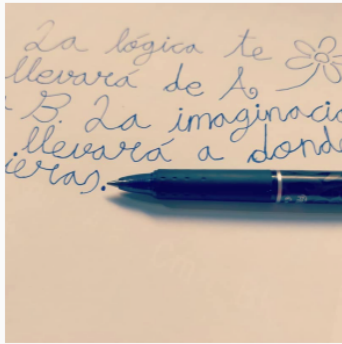 La lógica te
llevará de A
a B. La imaginació
llevará a donde
ieras.